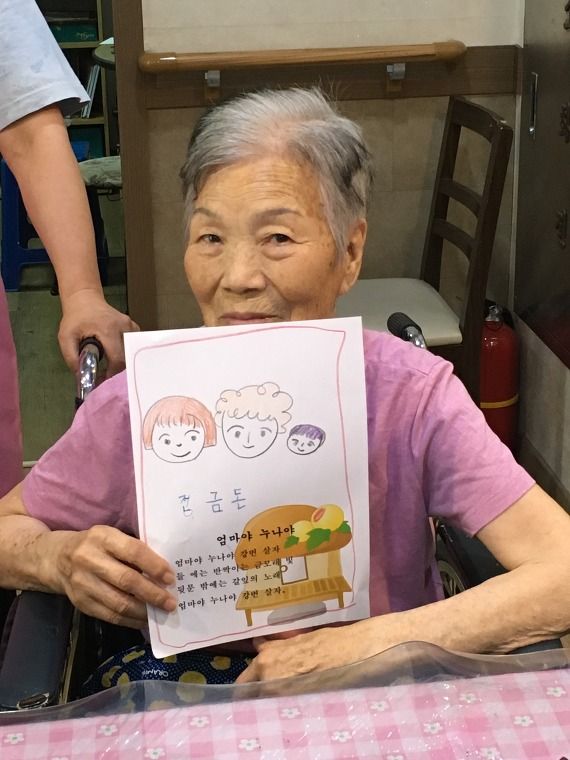 전 금 돈
엄마야 누나야
엄마야 누나야 강변 살자
뜰 에는 반짝이는 금모래 빛
뒷문 밖에는 갈잎의 노래
엄마야 누나야 강변 살자.